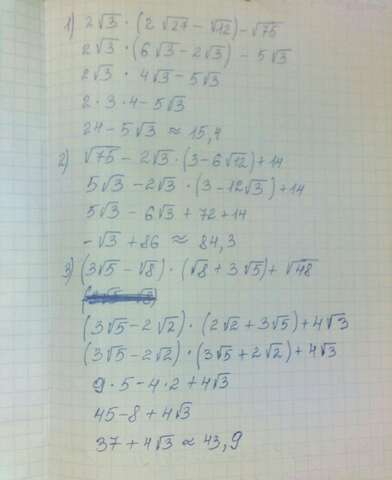 1) 2√3 · (2√27 - √12) - √75
2√3 · (6√3 - 2√3) - 5√3
2√3 · 4√3 - 5√3
2 · 3 · 4 - 5√3
24 - 5√3 ≈ 15,4
2) √75 - 2√3 · (3 - 6√12) + 14
5√3 - 2√3 · (3 - 12√3) + 14
5√3 - 6√3 + 72 + 14
-√3 + 86 ≈ 84,3
3) (3√5 - √8) · (√8 + 3√5) + √48
(3√5 - 2√2) · (2√2 + 3√5) + 4√3
(3√5 - 2√2) · (3√5 + 2√2) + 4√3
9 · 5 - 4 · 2 + 4√3
45 - 8 + 4√3
37 + 4√3 ≈ 43,9